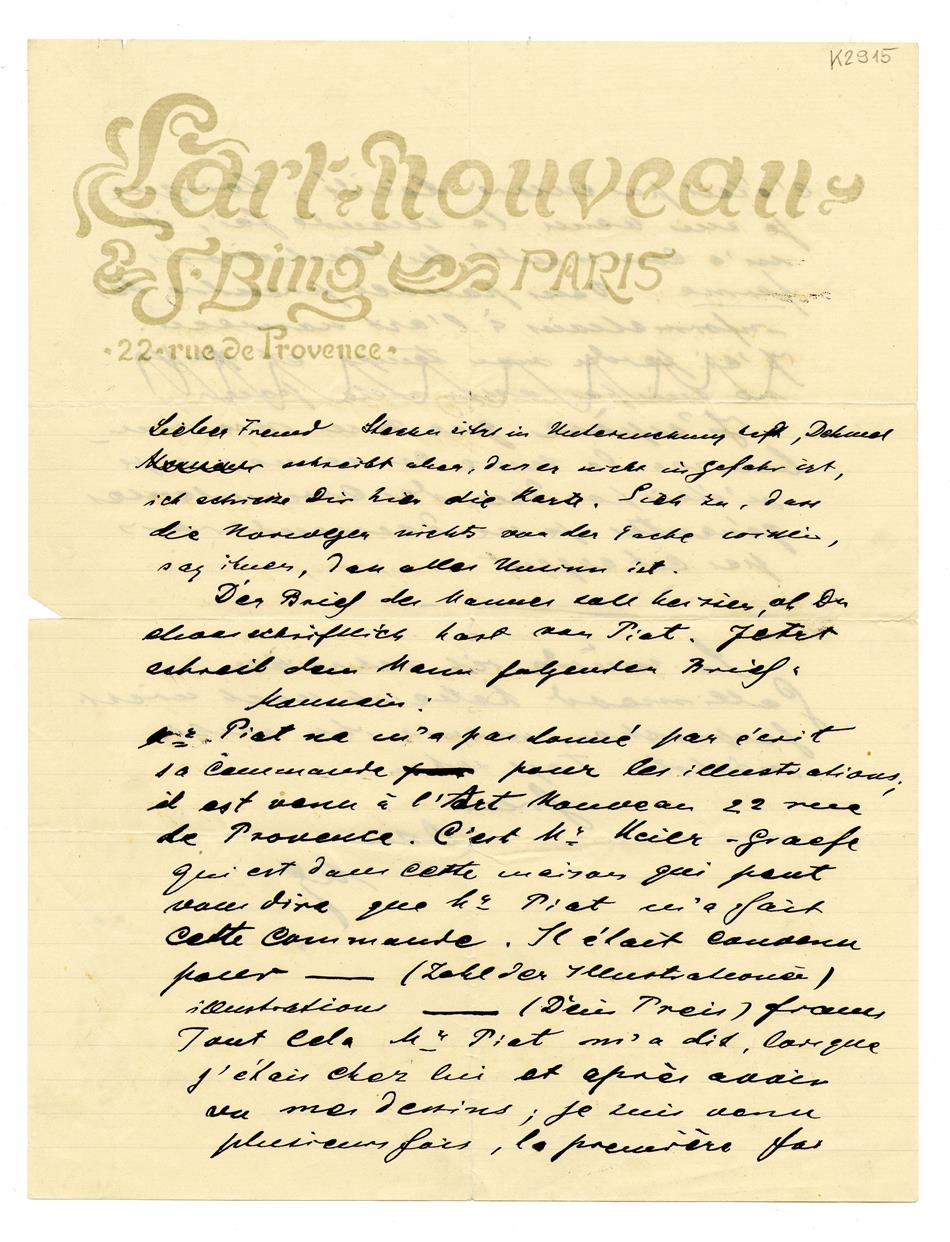 K2915
L'art-Nouveau
S. Bing PARIS
22 rue de Provence
Lieber Freund sitzt in Untersuchung haft, Dehmel
schreibt aber, dass er nicht in Gefahr ist,
ich schicke Dir hier die Karte. Sieh zu, dass
die Norweger nichts von der Sache,
sag ihnen, dass alles Unsinn ist.
Der Brief des Mannes soll heissen, ob Du
etwas schriftlich hast von Piat. Jetzt
schreib dem Mann folgenden Brief.
Monsieur:
Mr. Piat ne m'a pas donné par écrit
sa commande pour les illustrations,
il est venu à l'Art Nouveau 22 rue
de Provence. C'est Mr Meier-Graefe
qui est dans cette maison qui peut
vous dire que Mr Piat m'a fait
cette commande. Il était convenu
pour — (Zahl der Illustrationen)
illustrations — (Dein Preis) francs
Tout cela Mr Piat m'a dit, lorsque
j'étais chez lui et après avoir
vu mes dessins; je suis venu
plusieurs fois, la première fois